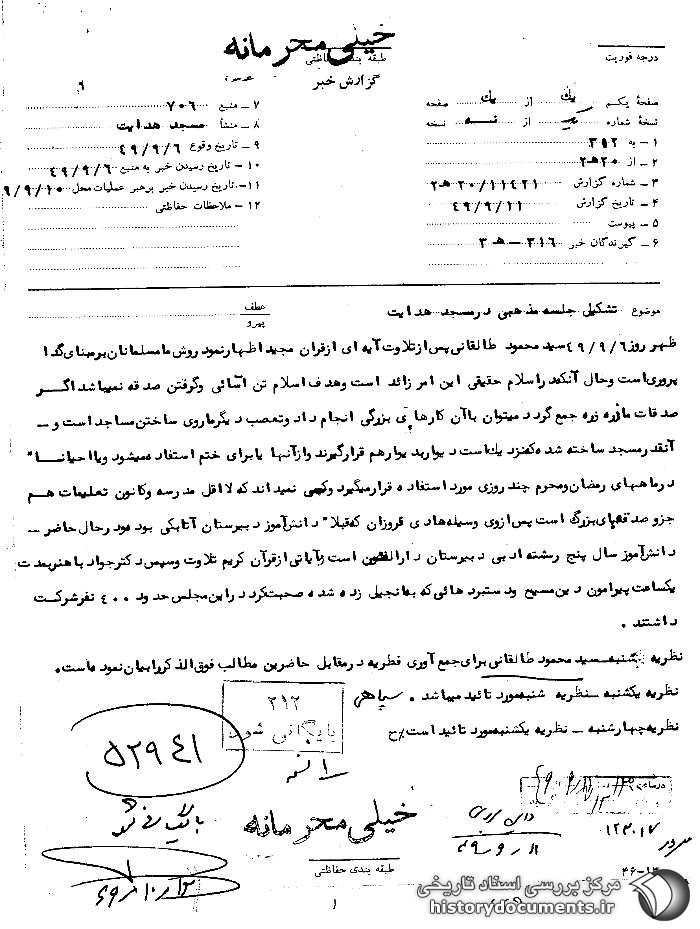 خیلی محرمانه
درجه فوریت
طبقه بندی حفاظتی
گزارش خبر
صفحهٔ یکم یک از یک صفحه
نسخهٔ شماره از سه نسخه
۱ - به ۳۱۲
۲ - از ۲۰هـ۲
۳ - شماره گزارش ۲۰/۱۱۴۲۱هـ۲
۴ - تاریخ گزارش ۴۹/۹/۱۱
۵ - پیوست
۶ - گیرندگان خبر ۳۱۶ - هـ۳
۷ - منبع ۷۰۶
۸ - منشأ مسجد هدایت
۹ - تاریخ وقوع ۴۹/۹/۶
۱۰ - تاریخ رسیدن خبر به منبع ۴۹/۹/۶
۱۱ - تاریخ رسیدن خبر برهبر عملیات محل ۹/۹/۱۰
۱۲ - ملاحظات حفاظتی
موضوع تشکیل جلسه مذهبی در مسجد هدایت
عطف
پیرو
ظهر روز ۴۹/۹/۶ سید محمود طالقانی پس از تلاوت آیه ای از قران مجید اظهار نمود روش ما مسلمانان بر مبنای گدا
پروری است و حال آنکه در اسلام حقیقی این امر زائد است و هدف اسلام تن آسائی و گرفتن صدقه نمیباشد اگر
صدقات ما ذره ذره جمع گردد میتوان با آن کارهای بزرگی انجام داد و تعصب دیگر ما روی ساختن مساجد است و -
آنقدر مسجد ساخته شده که نزدیک است دیوار بدیوار هم قرار گیرند و از آنها یا برای ختم استفاده میشود و یا احیاناً
در ماههای رمضان و محرم چند روزی مورد استفاده قرار میگیرد و کسی نمیداند که لااقل مدرسه و کانون تعلیمات هم
جزو صدقه‌های بزرگ است پس از وی وسیله هادی فروزان که قبلاً دانش‌آموز دبیرستان آتابکی بوده و در حال حاضر -
دانش‌آموز سال پنج رشته ادبی دبیرستان دارالفنون است آیاتی از قرآن کریم تلاوت و سپس دکتر جواد باهنر بمدت
یکساعت پیرامون دین مسیح و دستبردهائی که به انجیل زده شده صحبت کرد در این مجلس حدود ۴۰۰ نفر شرکت
داشتند .
نظریه شنبه - سید محمود طالقانی برای جمع آوری فطریه در مقابل حاضرین مطالب فوق‌الذکر را بیان نموده است.
نظریه یکشنبه - نظریه شنبه مورد تائید میباشد . سپاهی
نظریه چهارشنبه - نظریه یکشنبه مورد تائید است ح
۳۱۲
بایگانی شود
۵۲۹۴۱
بایگانی شد
خیلی محرمانه
طبقه بندی حفاظتی
۱۲۳۰۱۷
۴۶-۱۳
مرکز بررسی اسناد تاریخی
historydocuments.ir